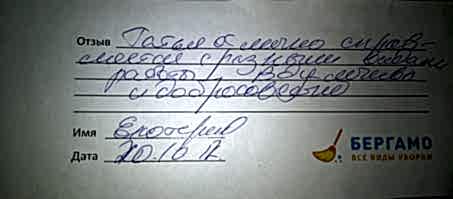 Отзыв Татьяна отлично справ-
ляется с разными видами
работы,
и добросовестно
Имя Екатерина
Дата 20.10.12
БЕРГАМО
ВСЕ ВИДЫ УБОРКИ